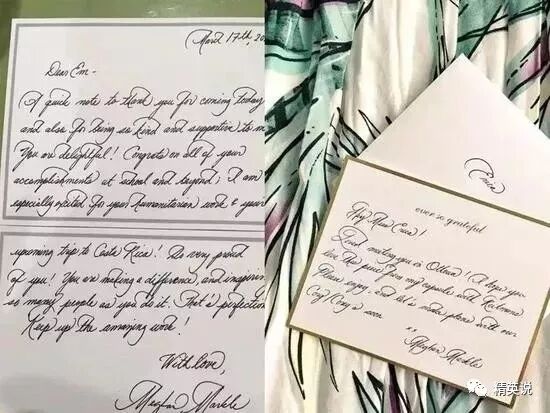 March 17th, 20
Dear Em-
A quick note to thank you for coming today
and also for being so kind and supportive to m
You are delightful! Congrats on all of your
accomplishments at school and beyond; I am
especially excited for your humanitarian work & your
upcoming trip to Costa Rica! So very proud
of you! You are making a difference, and inspiring
so many people as you do it. That is perfection
Keep up the amazing work!
With love,
Meghan Markle
Erica
ever so grateful
Hey Miss Erica!
Loved meeting you in Ottawa! I hope you
love the piece from my capsule with Reitmans
Please enjoy and let's make plans with our
soon
xx
Meghan Markle
精英说